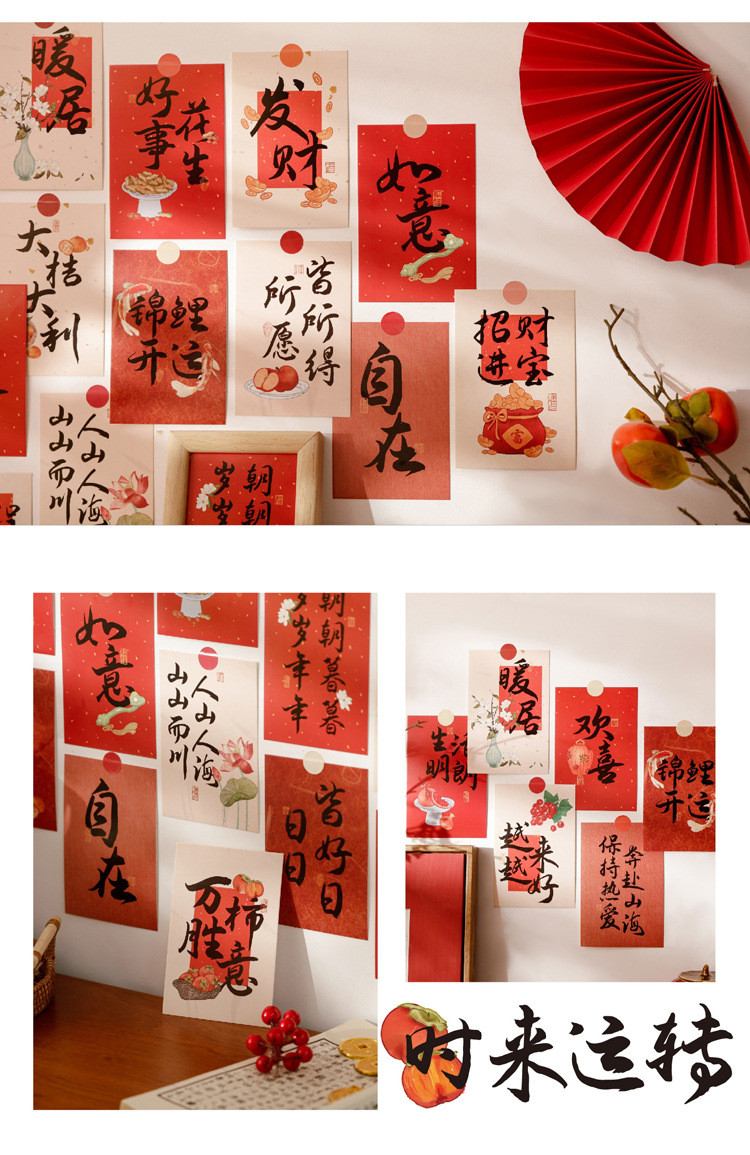 暖居
好事
花生
发财
如意
大桔
大利
锦鲤
开运
所愿
皆所得
招财
进宝
富
自在
人山人海
山山而川
朝朝
岁岁
如意
人山人海
山山而川
朝朝暮暮
岁岁年年
自在
日日
皆好日
万柿
胜意
暖居
欢喜
生活
明朗
锦鲤
开运
越来
越好
奔赴山海
保持热爱
时来运转